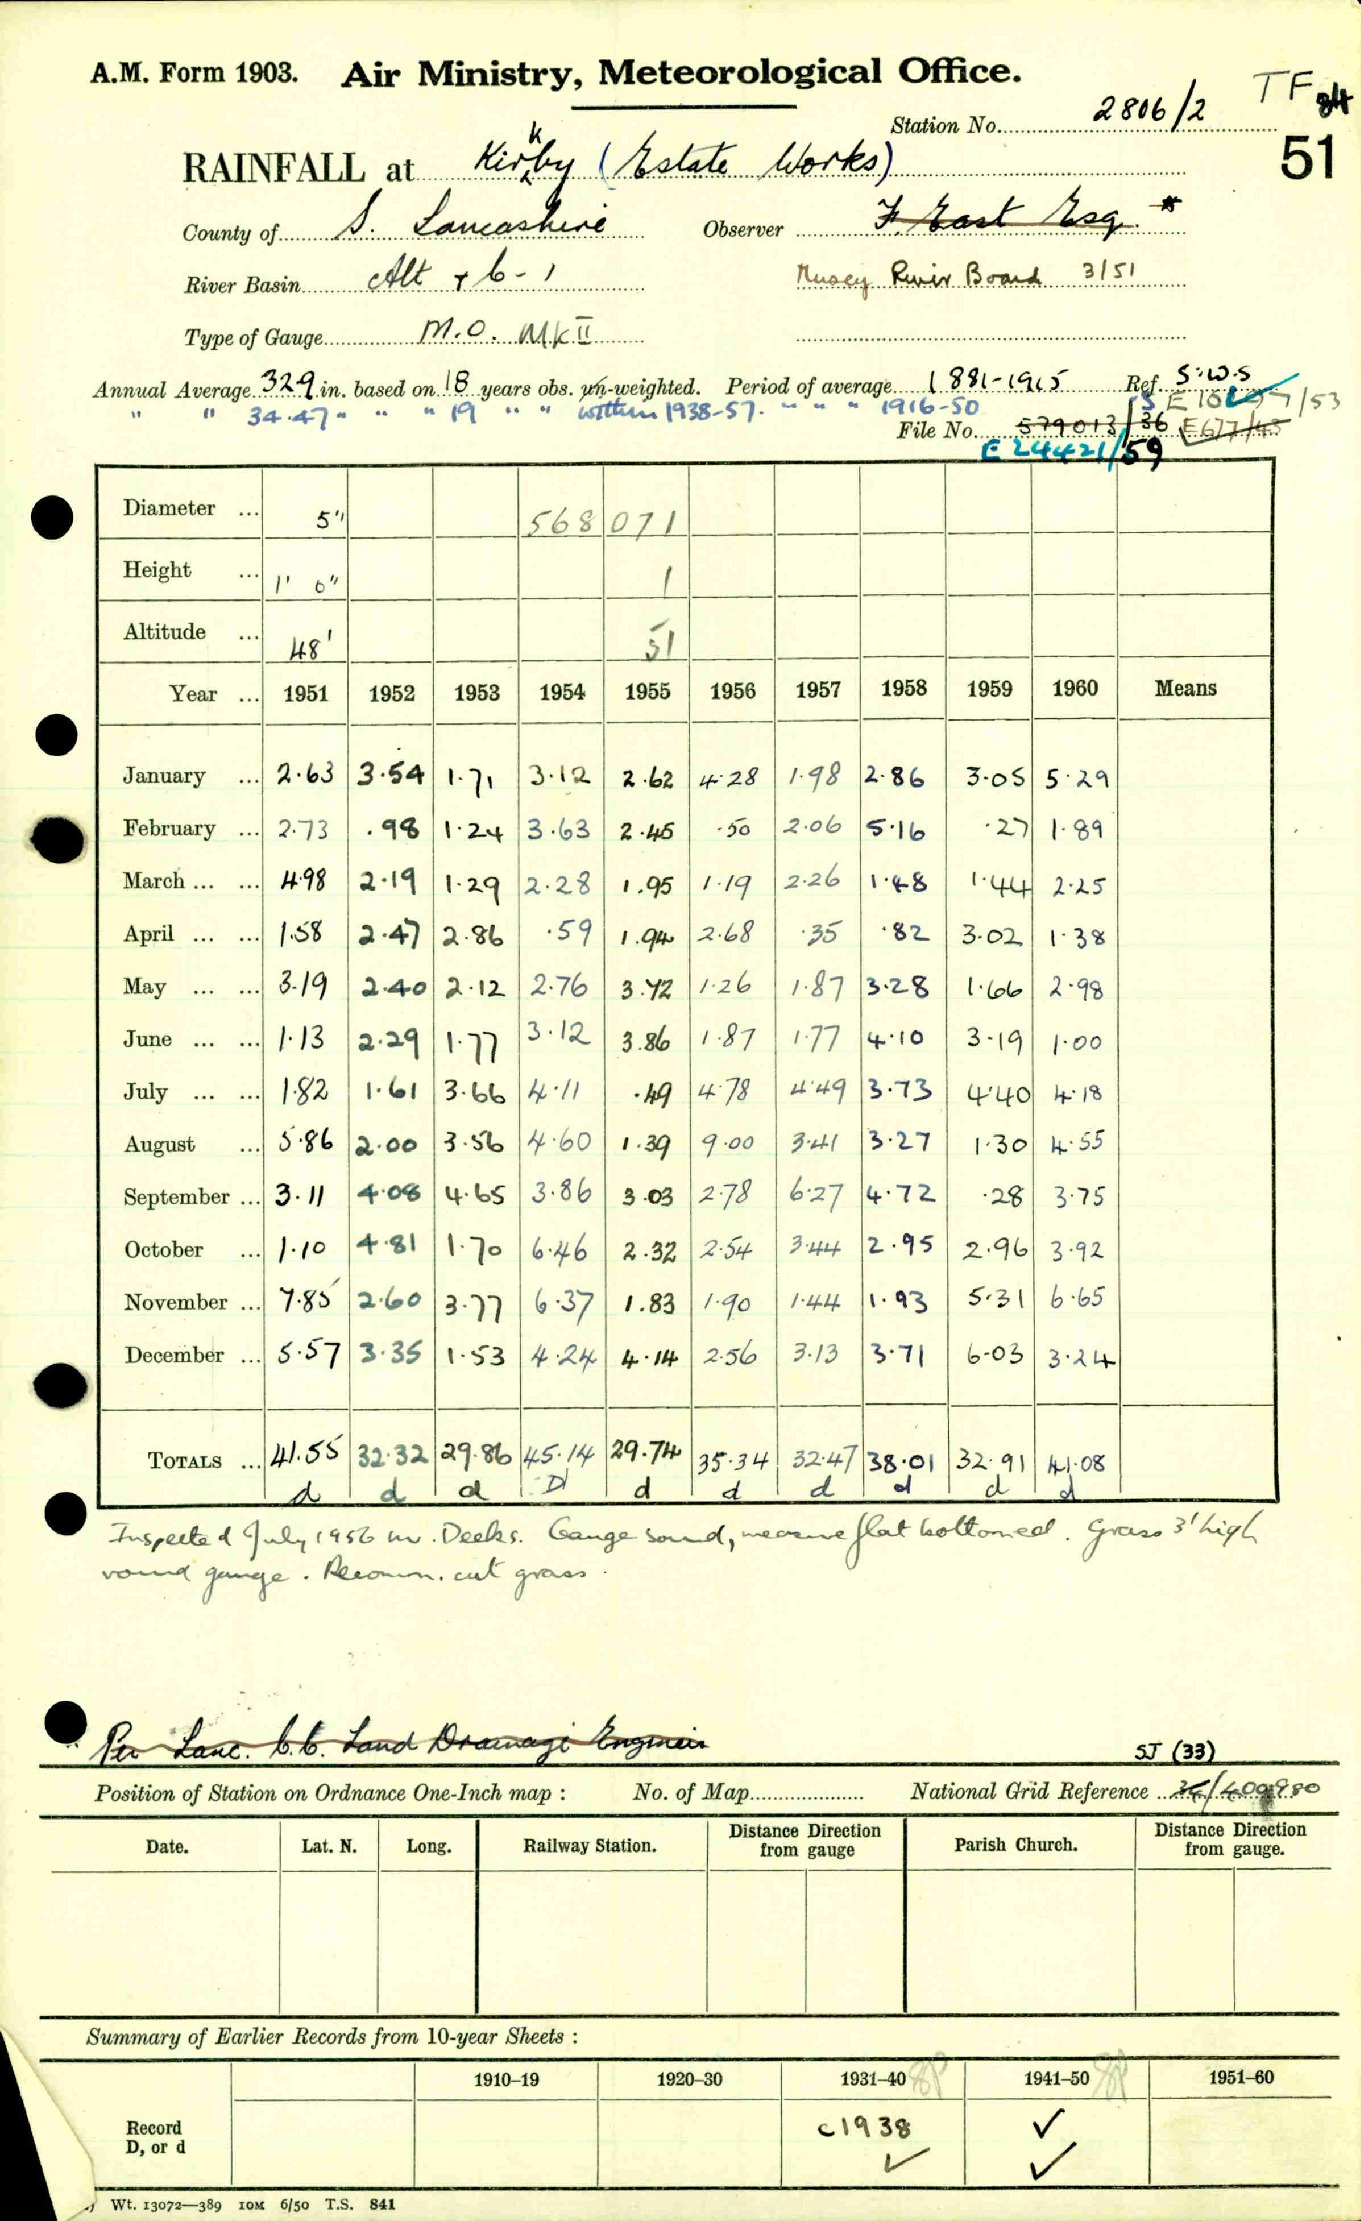 A.M. Form 1903. Air Ministry, Meteorological Office.
TF 84
Station No. 2806/2
51
RAINFALL at Kirkby (Estate Works)
County of S. Lancashire Observer F. East Esq. *
River Basin Alt + 6-1 Mersey River Board 3/51
Type of Gauge M.O. Mk II
Annual Average 32.9 in. based on 18 years obs. un-weighted. Period of average 1881-1915 Ref. S.W.S
" " 34.47 " " " 19 " " within 1938-57. " " " 1916-50
File No. 579013/36 E677/45
E 24421/59
Diameter ... 5" 568 071
Height ... 1' 0" 1
Altitude ... 48' 51
Year ... 1951 1952 1953 1954 1955 1956 1957 1958 1959 1960 Means
January ... 2.63 3.54 1.71 3.12 2.62 4.28 1.98 2.86 3.05 5.29
February ... 2.73 .98 1.24 3.63 2.45 .50 2.06 5.16 .27 1.89
March ... ... 4.98 2.19 1.29 2.28 1.95 1.19 2.26 1.48 1.44 2.25
April ... ... 1.58 2.47 2.86 .59 1.94 2.68 .35 .82 3.02 1.38
May ... ... 3.19 2.40 2.12 2.76 3.72 1.26 1.87 3.28 1.66 2.98
June ... ... 1.13 2.29 1.77 3.12 3.86 1.87 1.77 4.10 3.19 1.00
July ... ... 1.82 1.61 3.66 4.11 .49 4.78 4.49 3.73 4.40 4.18
August ... 5.86 2.00 3.56 4.60 1.39 9.00 3.41 3.27 1.30 4.55
September ... 3.11 4.08 4.65 3.86 3.03 2.78 6.27 4.72 .28 3.75
October ... 1.10 4.81 1.70 6.46 2.32 2.54 3.44 2.95 2.96 3.92
November ... 7.85 2.60 3.77 6.37 1.83 1.90 1.44 1.93 5.31 6.65
December ... 5.57 3.35 1.53 4.24 4.14 2.56 3.13 3.71 6.03 3.24
TOTALS ... 41.55 32.32 29.86 45.14 29.74 35.34 32.47 38.01 32.91 41.08
d d d D d d d d d d
Inspected July 1956 Mr. Deeks. Gauge sound, measure flat bottomed. Grass 3' high
round gauge. Recomm. cut grass.
Per Lanc. C.C. Land Drainage Engineer
SJ (33)
Position of Station on Ordnance One-Inch map : No. of Map National Grid Reference 34/409980
Date. Lat. N. Long. Railway Station. Distance from Direction gauge Parish Church. Distance from Direction gauge.
Summary of Earlier Records from 10-year Sheets :
1910-19 1920-30 1931-40 1941-50 1951-60
Record D, or d c1938 ✓ ✓ ✓
Wt. 13072—389 10M 6/50 T.S. 841